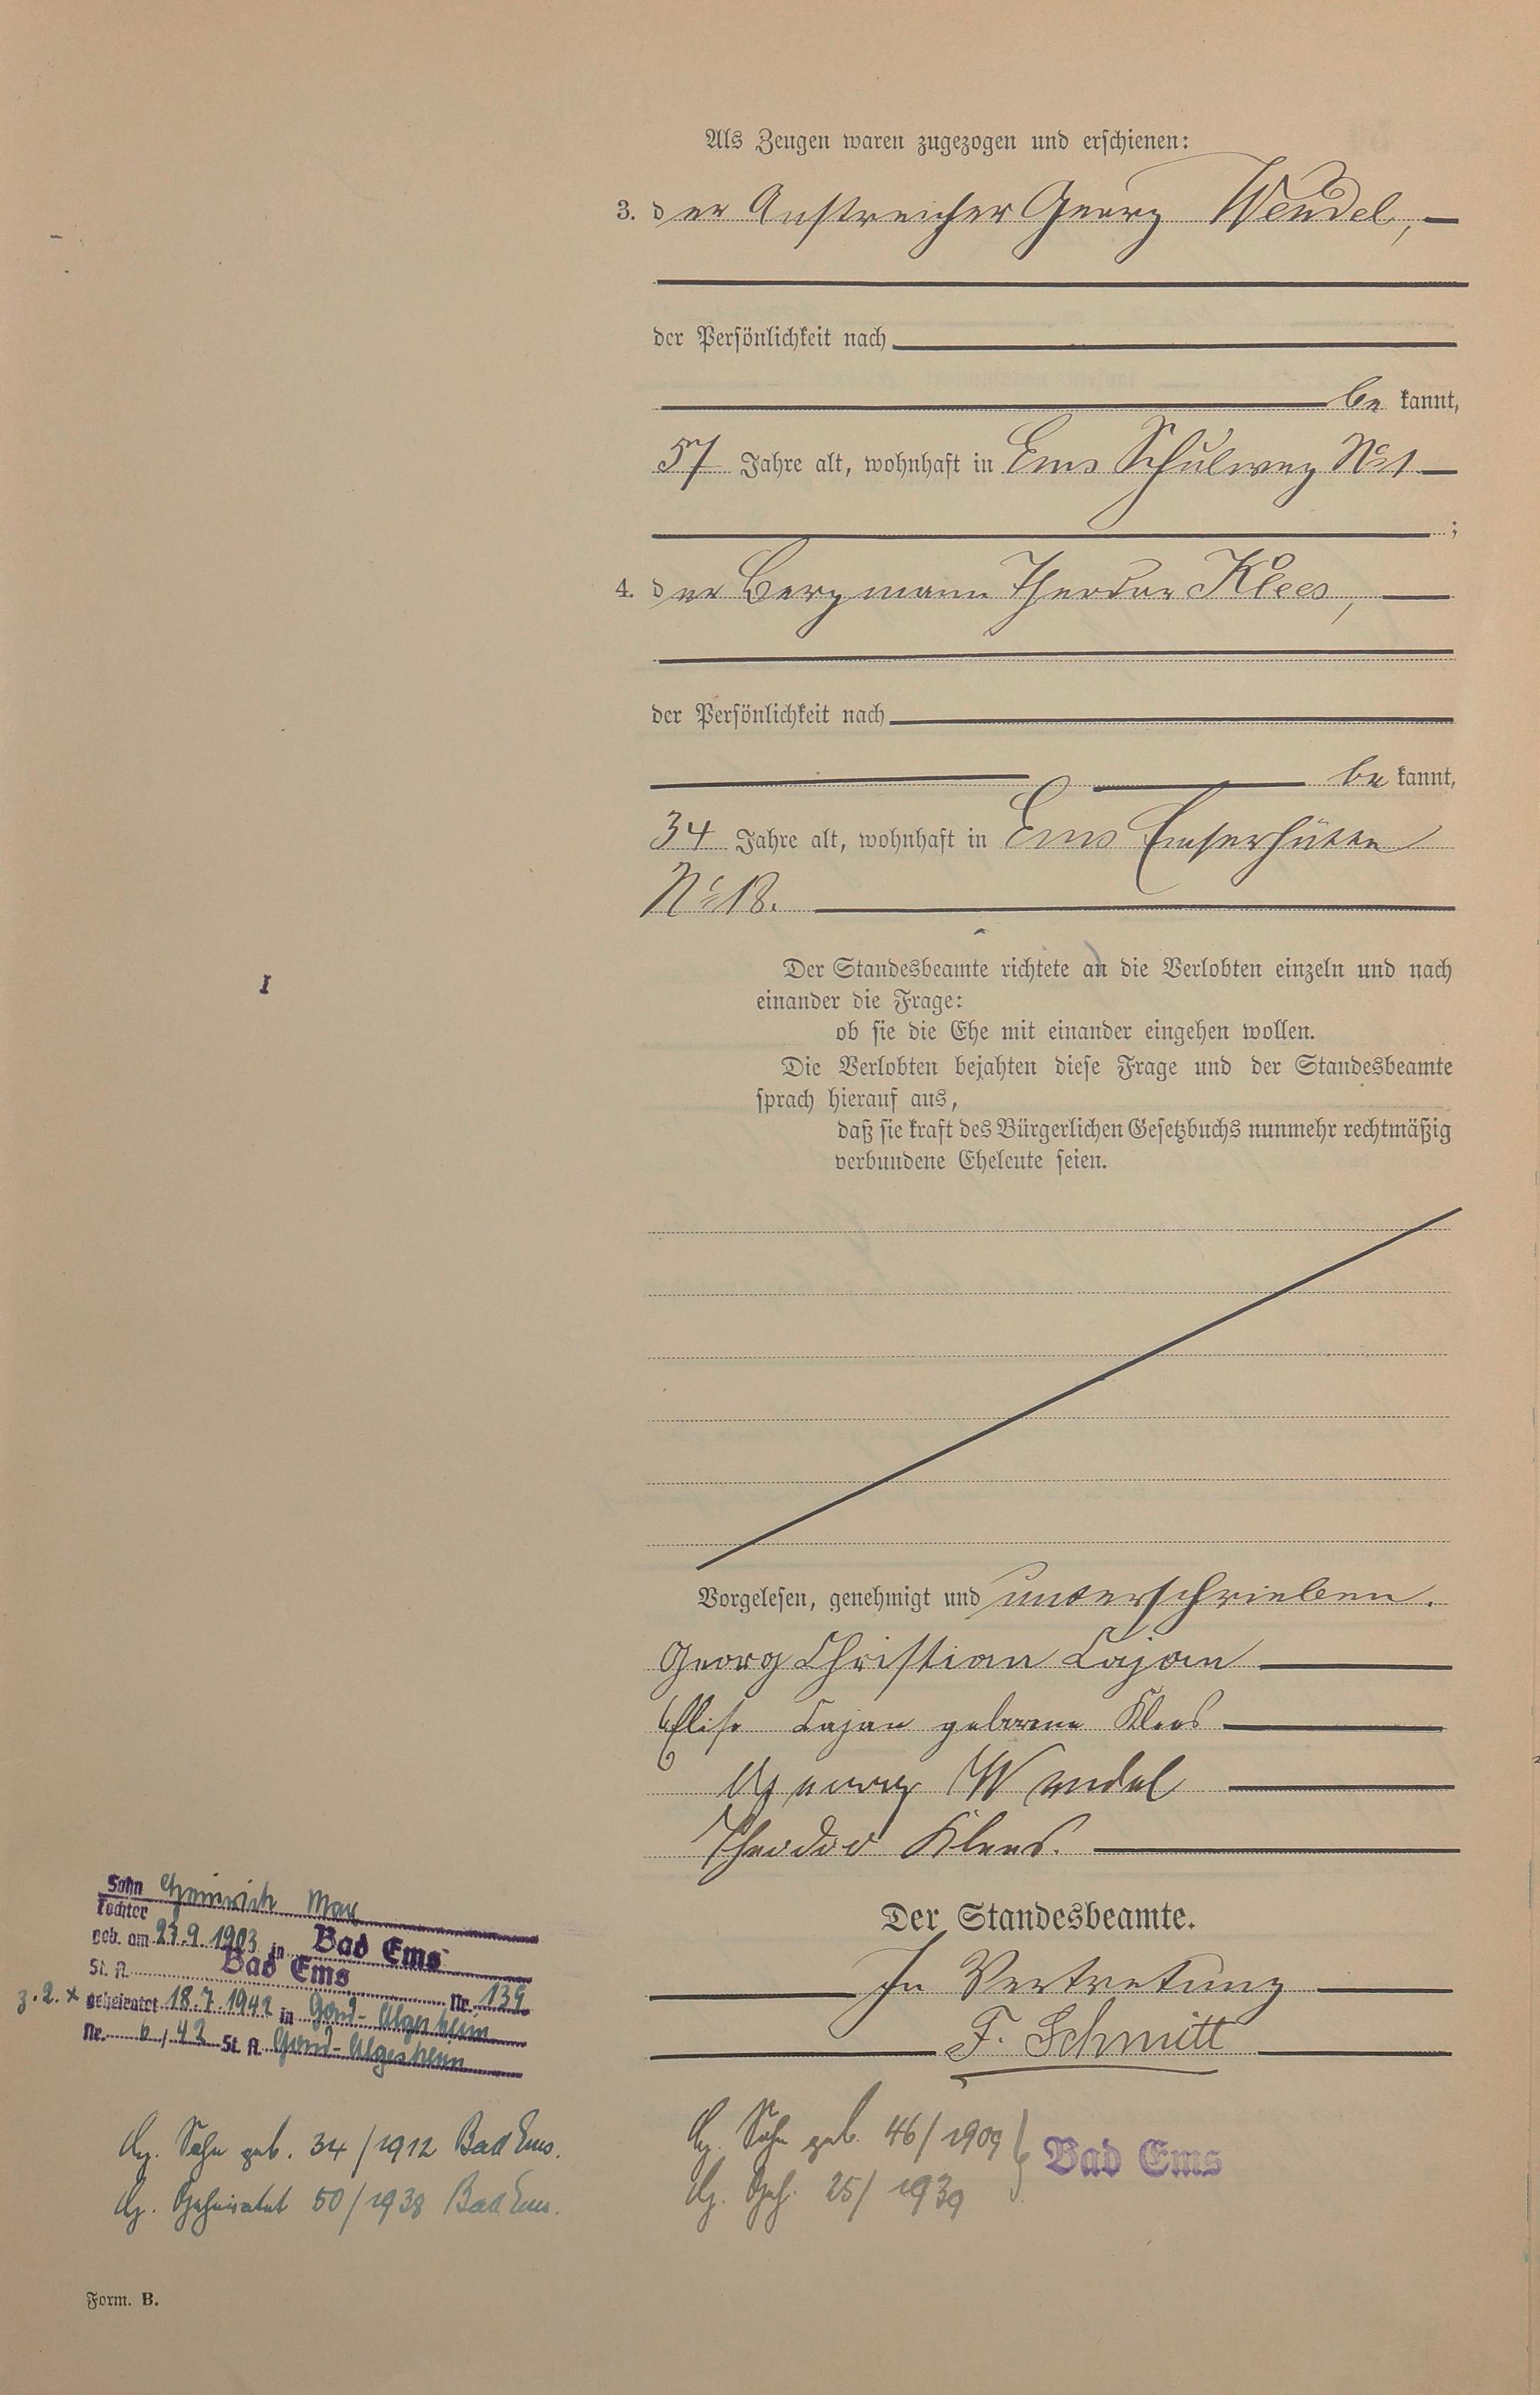 Als Zeugen waren zugezogen und erschienen:
3. der Anstreicher Georg Wendel,
der Persönlichkeit nach
be kannt,
57 Jahre alt, wohnhaft in Ems Schulweg No 1
;
4. der Bergmann Theodor Klees,
der Persönlichkeit nach
be kannt,
34 Jahre alt, wohnhaft in Ems Emserhütte
No 18.
Der Standesbeamte richtete an die Verlobten einzeln und nach
einander die Frage:
ob sie die Ehe mit einander eingehen wollen.
Die Verlobten bejahten diese Frage und der Standesbeamte
sprach hierauf aus,
daß sie kraft des Bürgerlichen Gesetzbuchs nunmehr rechtmäßig
verbundene Eheleute seien.
Vorgelesen, genehmigt und unterschrieben.
Georg Christian Cajan
Elise Cajan geborene Klees
Georg Wendel
Theodor Klees.
Der Standesbeamte.
In Vertretung
F. Schmitt
Sohn Heinrich Max
Tochter
geb. am 27.9.1903 in Bad Ems
St. A. Bad Ems Nr. 139
z. 2. x geheiratet 18.7.1942 in Gond-Algesheim
Nr. 6/42 St. A. Gond-Algesheim
Sohn geb. 34/1912 Bad Ems.
Geheiratet 50/1938 Bad Ems.
Sohn geb. 46/1909 } Bad Ems
Geh. 25/1939
Form. B.